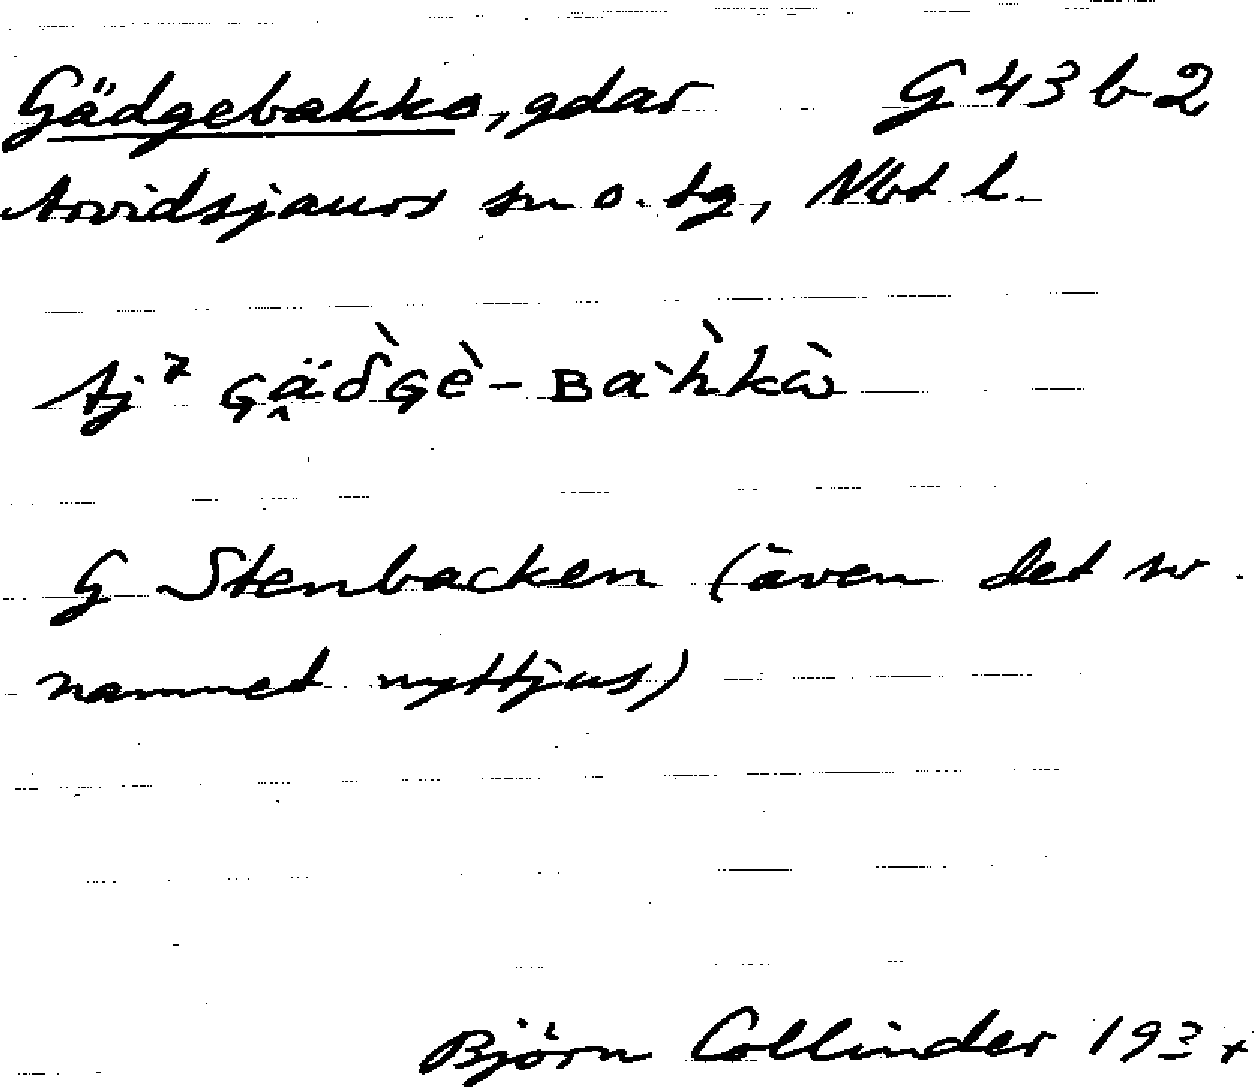 Gädgebakko, gdar G 43 b 2
Arvidsjaurs sn o. tg, Nbt l.
Aj⁷ Gä̭δ̀Gè-Ba`h̀kà̀
G Stenbacken (även det sv.
namnet nyttjas)
Björn Collinder 193+